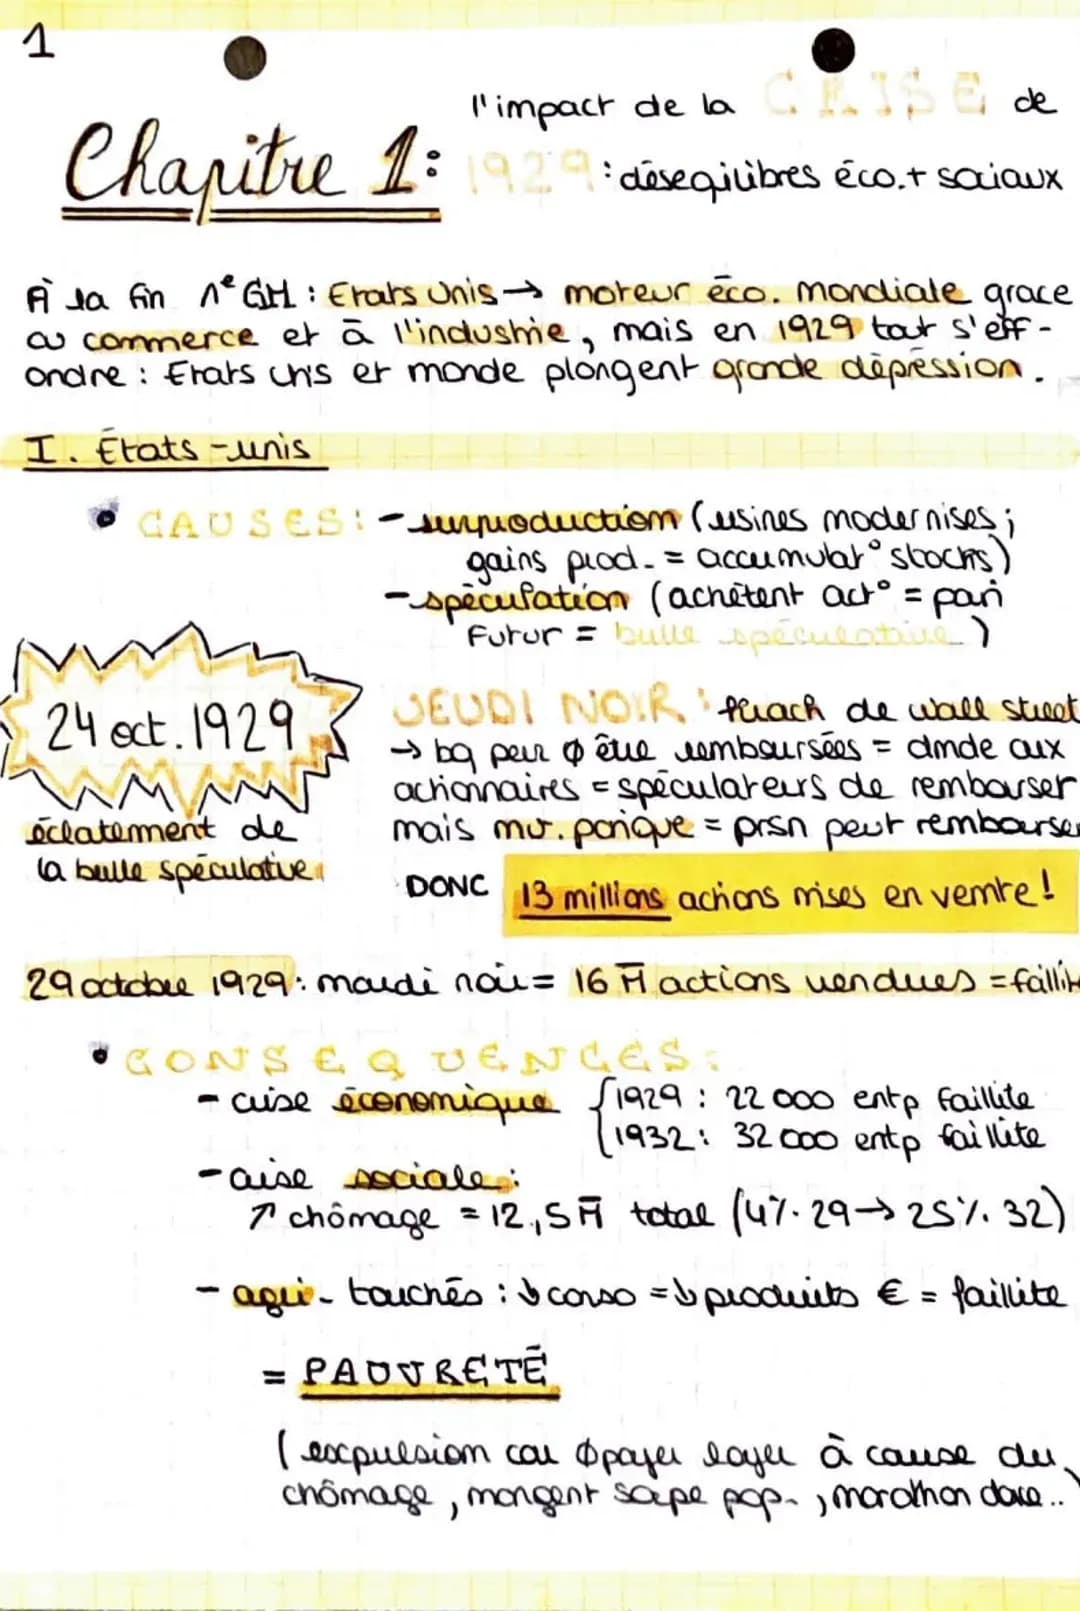 1
Chapitre 1: l'impact de la CRISE de
1929: déseqilibres éco.+ sociaux
À la fin 1e GM : Etats Unis → moteur éco. mondiale grace
au commerce et à l'industrie, mais en 1929 tout s'eff-
ondre : Etats unis et monde plongent grande dépression.
I. États-unis
• CAUSES: - surproduction (usines modernises;
gains prod. = accumulat° stocks)
- spéculation (achètent act° = pari
Futur = bulle spéculative)
24 oct. 1929
éclatement de
la bulle spéculative
JEUDI NOIR: krach de wall street
→ bq peur ∅ être remboursées = dmde aux
actionnaires = spéculateurs de rembourser
mais mv. panique = prsn peut rembourser
DONC 13 millions actions mises en vente!
29 octobre 1929: mardi noir = 16 M actions vendues = faillite
• CONSEQUENCES:
- crise économique { 1929 : 22 000 entp faillite
1932: 32 000 entp faillite
- crise sociale :
↗ chômage = 12,5 M total (4% 29 → 25% 32)
- agri. touchés : ↓ conso = ↓ produits € = faillite
= PAUVRETÉ
(expulsion car ∅ payer loyer à cause du
chômage, mangent soupe pop., marathon danse..)